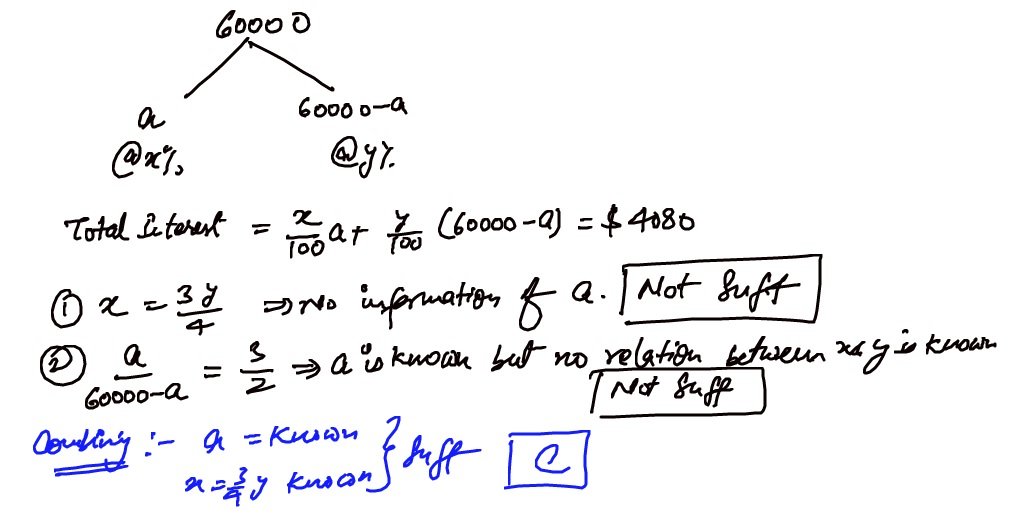 60000
a 60000-a
@x% @y%
Total Interest = x/100 a + y/100 (60000-a) = $4080
① x = 3y/4 ⇒ No information of a. Not Suff
② a/60000-a = 3/2 ⇒ a is known but no relation between x & y is known
Not Suff
Combining :- a = known
x = 3/4 y known } Suff C